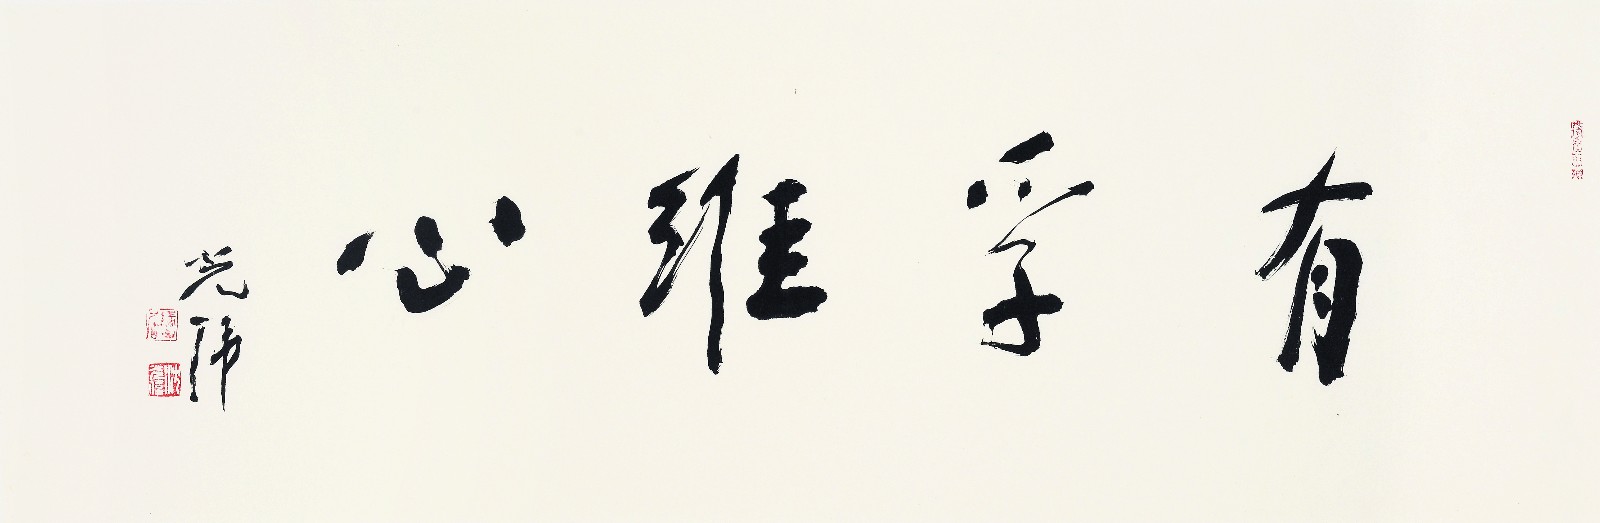 有孚維心
光